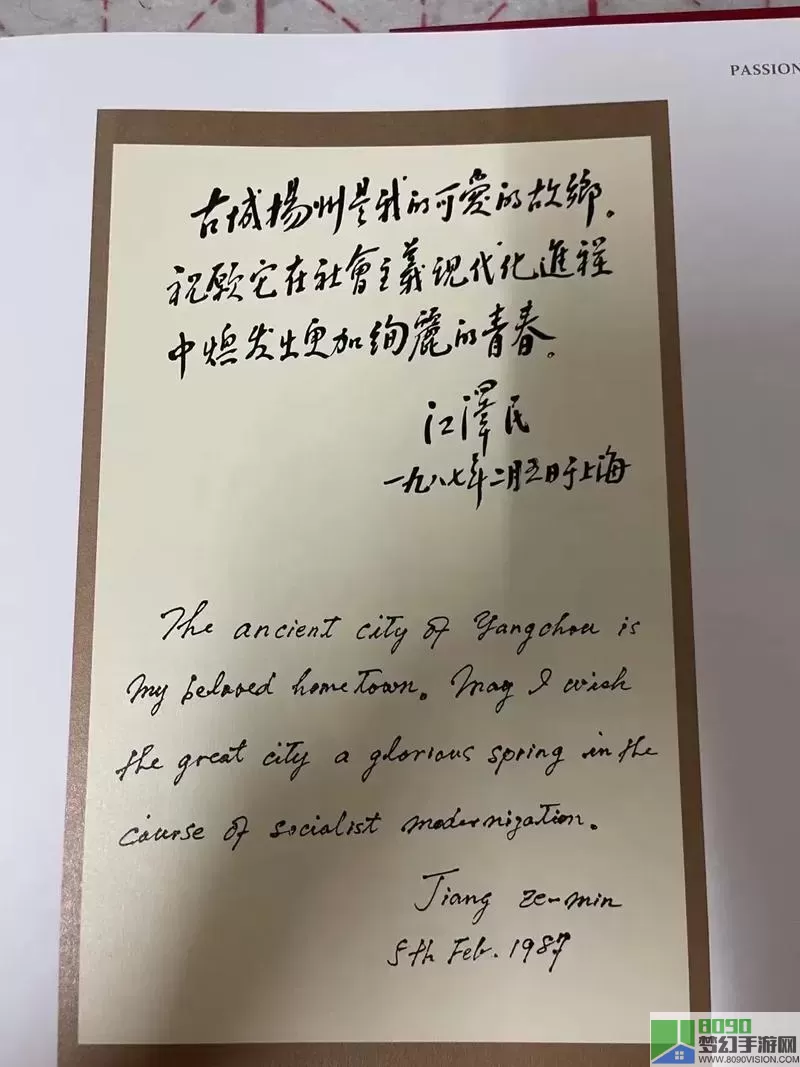 PASSION
古城揚州是我的可愛的故鄉。
祝願它在社會主義現代化進程
中煥发出更加絢麗的青春。
江澤民
一九八七年二月五日于上海
The ancient city of Yangchou is
my beloved hometown. May I wish
the great city a glorious spring in the
course of socialist modernization.
Jiang Ze-min
5th Feb. 1987
8090
梦幻手游网
WWW.8090VISION.COM